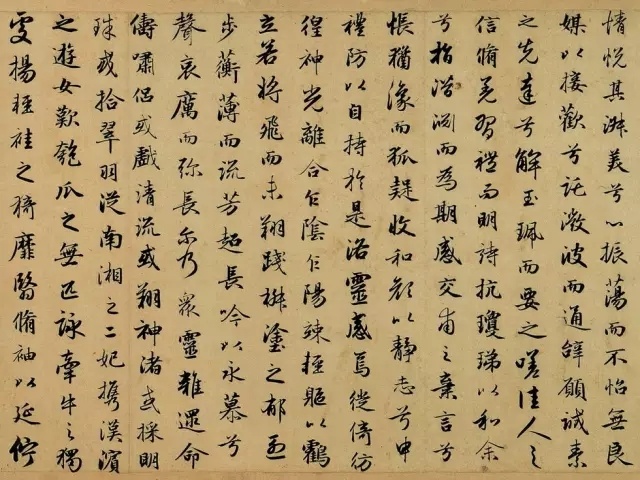 情悅其淑美兮心振蕩而不怡無良
媒以接歡兮託微波而通辭願誠素
之先達兮解玉珮而要之嗟佳人之
信脩羌習禮而明詩抗瓊珶以和余
兮指潛淵而為期感交甫之棄言兮
悵猶豫而狐疑收和顏以靜志兮申
禮防以自持於是洛靈感焉徙倚彷
徨神光離合乍陰乍陽竦輕軀以鶴
立若將飛而未翔踐椒塗之郁烈
步蘅薄而流芳超長吟以永慕兮
聲哀厲而彌長爾乃眾靈雜遝命
儔嘯侶或戲清流或翔神渚或採明
珠或拾翠羽從南湘之二妃攜漢濱
之遊女歎匏瓜之無匹詠牽牛之獨
處揚輕袿之猗靡翳脩袖以延佇